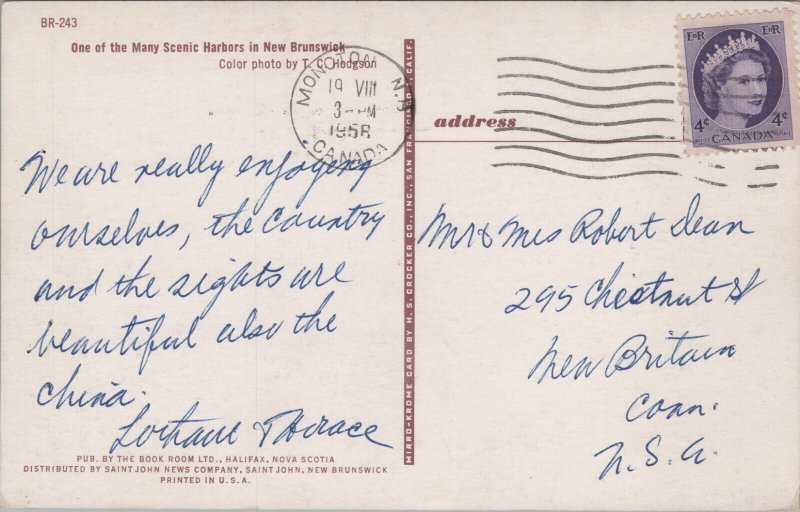 BR-243
One of the Many Scenic Harbors in New Brunswick
Color photo by T. C. Hodgson
MONCTON N.B
19 VIII
3- PM
1958
CANADA
EIIR EIIR
4¢ 4¢
CANADA
address
We are really enjoying
ourselves, the country
and the sights are
beautiful also the
china.
& Horace
Mr & Mrs Robert Dean
295 Chestnut St
New Britain
Conn.
U.S.A.
MIRRO-KROME CARD BY H. S. CROCKER CO., INC., SAN FRANCISCO, CALIF.
PUB. BY THE BOOK ROOM LTD., HALIFAX, NOVA SCOTIA
DISTRIBUTED BY SAINT JOHN NEWS COMPANY, SAINT JOHN, NEW BRUNSWICK
PRINTED IN U.S.A.